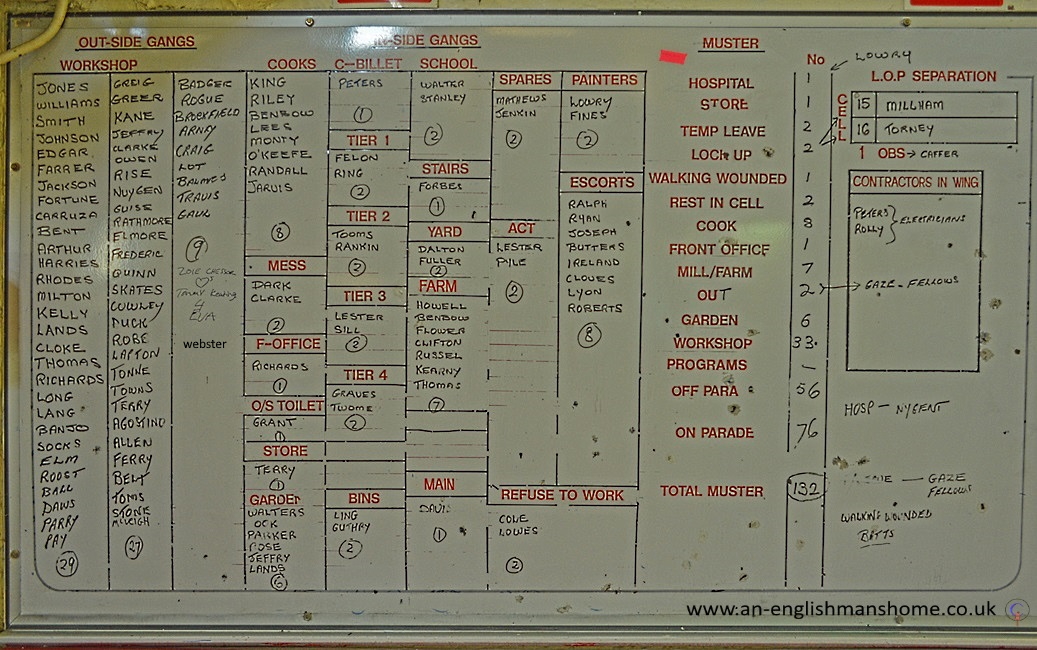 OUT-SIDE GANGS
WORKSHOP
JONES
WILLIAMS
SMITH
JOHNSON
EDGAR
FARRER
JACKSON
FORTUNE
CARRUZA
BENT
ARTHUR
HARRIES
RHODES
MILTON
KELLY
LANDS
CLOKE
THOMAS
RICHARDS
LONG
LANG
BANJO
SOCKS
ELM
ROOST
BALL
DAWS
PARRY
PAY
29
GREIG
GREER
KANE
JEFFRY
CLARKE
OWEN
RISE
NUYGEN
GUISE
RATHMORE
ELMORE
FREDERIC
QUINN
SKATES
COWLEY
DUCK
ROBE
LAPTON
TONNE
TOWNS
TERRY
AGOSTINO
ALLEN
FERRY
BELT
TOMS
STONE
27
BADGER
ROGUE
BROOKFIELD
ARNY
CRAIG
LOT
TRAVIS
GAUL
9
4
EVA
webster
IN-SIDE GANGS
COOKS
KING
RILEY
BENBOW
LEES
MONTY
O'KEEFE
RANDALL
JARVIS
8
MESS
DARK
CLARKE
2
F-OFFICE
RICHARDS
1
O/S TOILET
GRANT
1
STORE
TERRY
1
GARDEN
WALTERS
OCK
PARKER
ROSE
JEFFRY
LANDS
6
C-BILLET
PETERS
1
TIER 1
FELON
RING
2
TIER 2
TOOMS
RANKIN
2
TIER 3
LESTER
SILL
2
TIER 4
GRAVES
TWOME
2
BINS
LING
GUTHRY
2
SCHOOL
WALTER
STANLEY
2
STAIRS
FORBES
1
YARD
DALTON
FULLER
2
FARM
HOWELL
BENBOW
FLOWER
CLIFTON
RUSSEL
KEARNY
THOMAS
7
MAIN
DAVIS
1
SPARES
MATHEWS
JENKIN
2
ACT
LESTER
PYLE
2
PAINTERS
LOWRY
FINES
2
ESCORTS
RALPH
RYAN
JOSEPH
BUTTERS
IRELAND
CLOVES
LYON
ROBERTS
8
REFUSE TO WORK
COLE
LOWES
2
MUSTER No
HOSPITAL 1 ← LOWRY
STORE 1
TEMP LEAVE 2
LOCK UP 2
WALKING WOUNDED 1
REST IN CELL 2
COOK 8
FRONT OFFICE 1
MILL/FARM 7
OUT 2 → GAZE - FELLOWS
GARDEN 6
WORKSHOP 33
PROGRAMS -
OFF PARA 56
ON PARADE 76
TOTAL MUSTER 132
L.O.P SEPARATION
CELL
15 MILLHAM
16 TORNEY
1 OBS → CAFFER
CONTRACTORS IN WING
PETERS
ROLLY } ELECTRICIANS
HOSP - NYGENT
— GAZE
FELLOWS
WALKING WOUNDED
BATTS
www.an-englishmanshome.co.uk